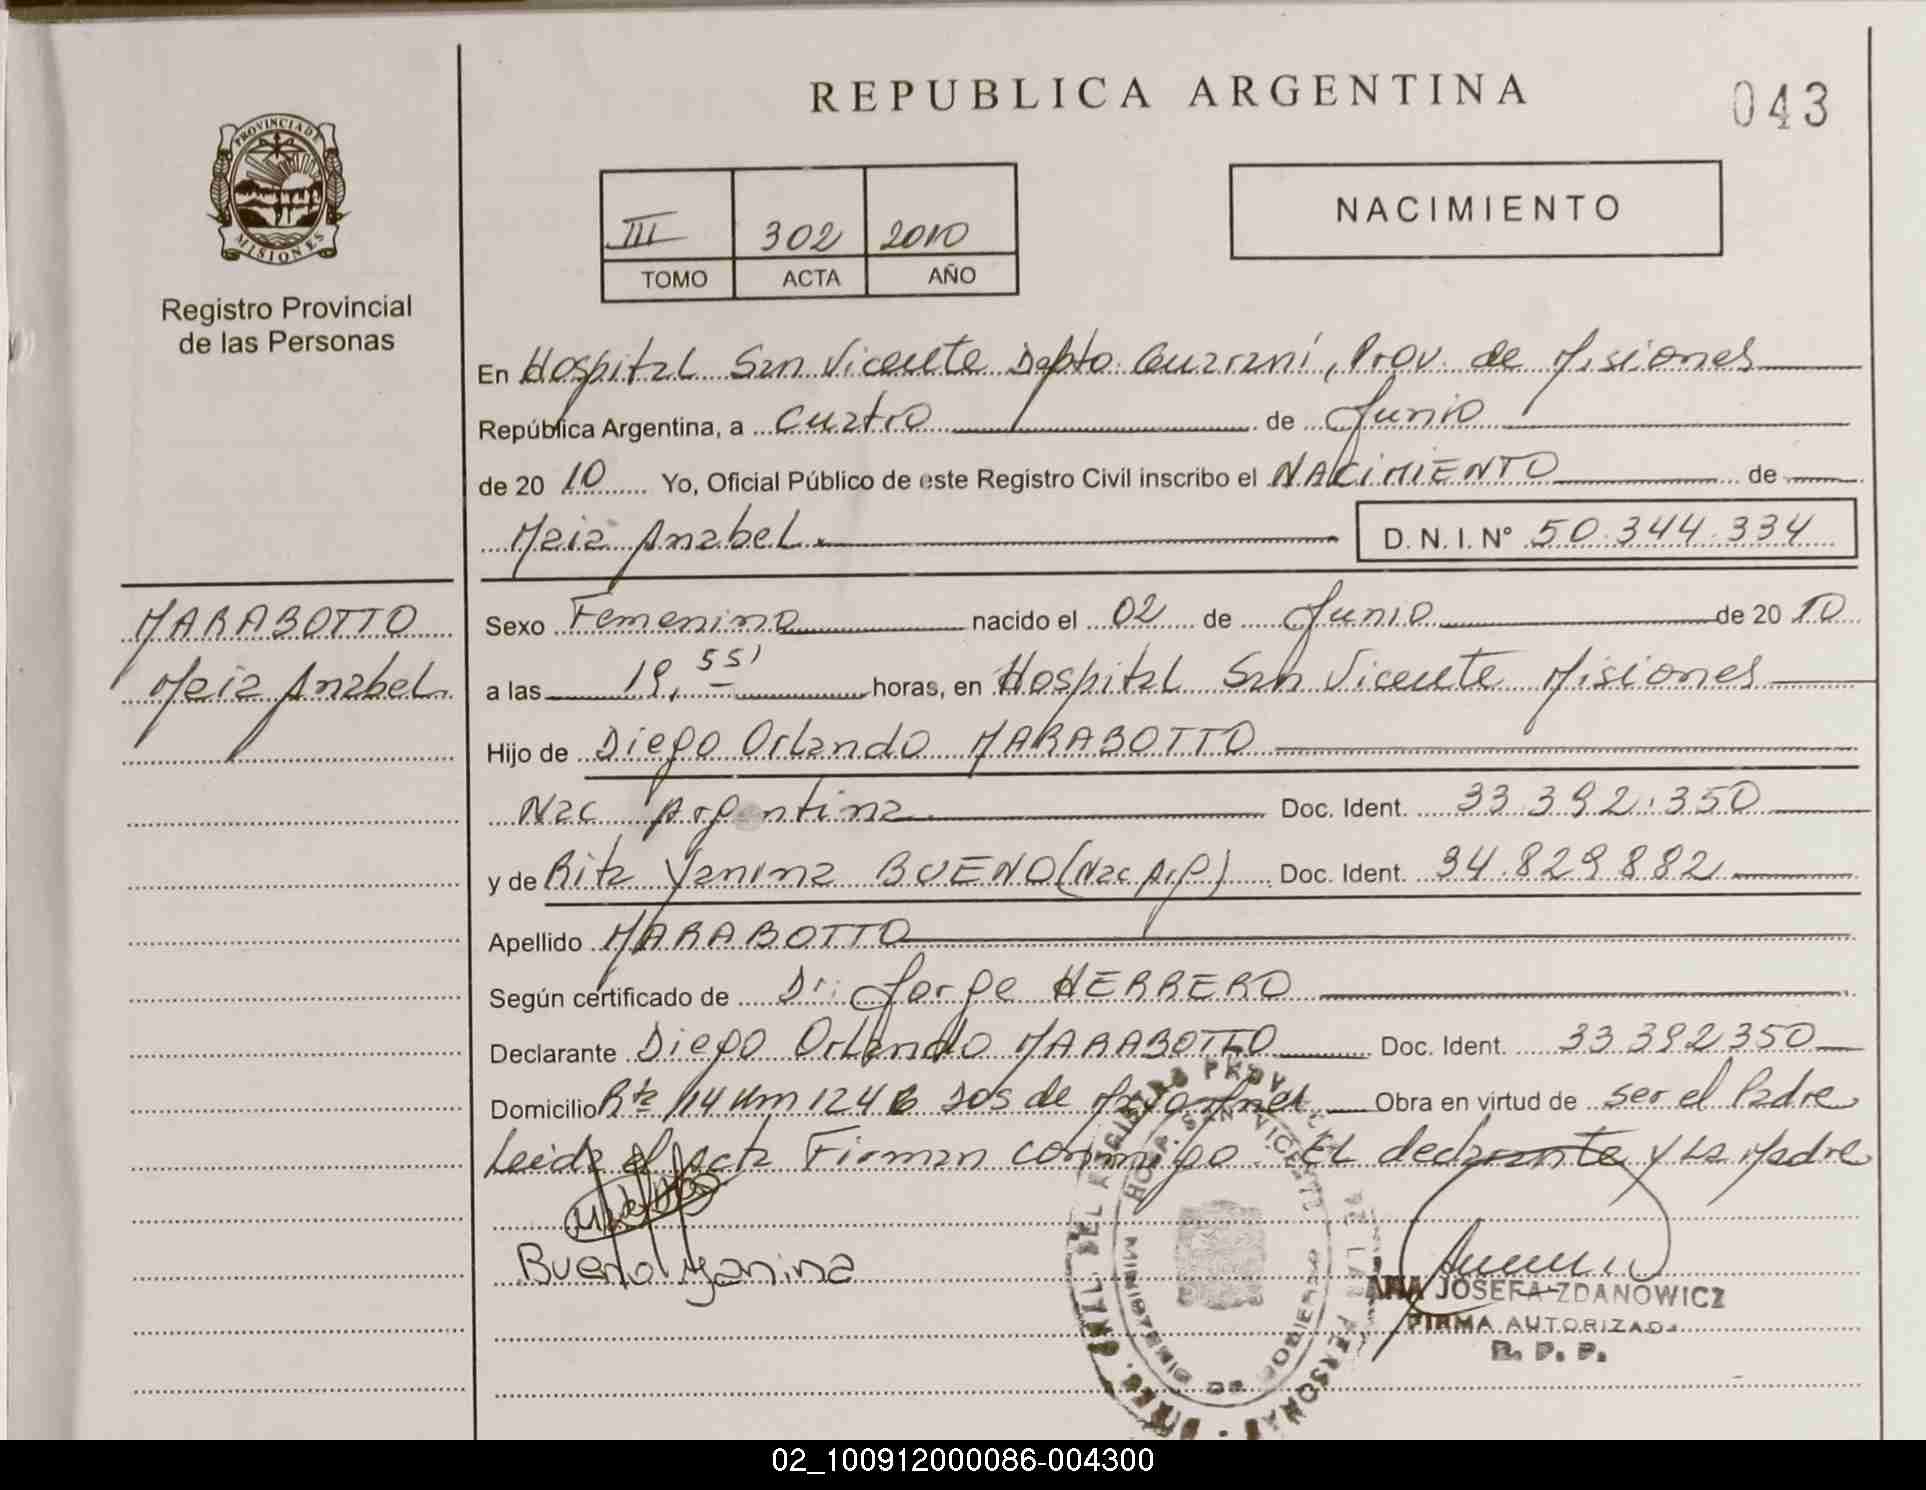 REPUBLICA ARGENTINA
043
PROVINCIA DE
MISIONES
Registro Provincial
de las Personas
III 302 2010
TOMO ACTA AÑO
NACIMIENTO
En Hospital San Vicente Depto Guaraní, Prov. de Misiones
República Argentina, a Cuatro de Junio
de 20 10 Yo, Oficial Público de este Registro Civil inscribo el NACIMIENTO de
Maia Anabel. D. N. I. N° 50.344.334
MARABOTTO
Maia Anabel
Sexo Femenino nacido el 02 de Junio de 20 10
a las 19,55' horas, en Hospital San Vicente Misiones
Hijo de Diego Orlando MARABOTTO
Nac Argentina Doc. Ident. 33.392.350
y de Rita Yanina BUENO (Nac Arg) Doc. Ident. 34.829.882
Apellido MARABOTTO
Según certificado de Dr. Jorge HERRERO
Declarante Diego Orlando MARABOTTO Doc. Ident. 33.392.350
Domicilio Rta 14 Km 1246 Dos de Mayo Mnes Obra en virtud de ser el Padre
Leida el Acta Firman conmigo. El declarante y La Madre
Bueno Yanina
HOSP. SAN VICENTE
MINISTERIO DE GOBIERNO
ANA JOSEFA ZDANOWICZ
FIRMA AUTORIZADA
R. P. P.
02_100912000086-004300